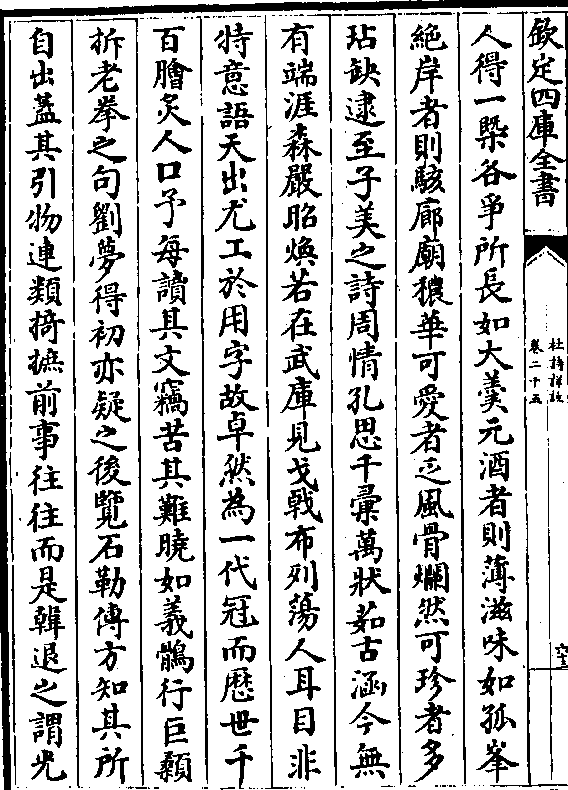 欽定四庫全書
杜詩詳註
卷二十五
人得一槩各爭所長如大羮元酒者則薄滋味如孤峯
絶岸者則駭廊廟穠華可愛者乏風骨爛然可珍者多
玷缺逮至子美之詩周情孔思千彙萬狀茹古涵今無
有端涯森嚴昭煥若在武庫見戈戟布列蕩人耳目非
特意語天出尤工於用字故卓然為一代冠而歴世千
百膾炙人口予每讀其文竊苦其難曉如義鶻行巨顙
拆老拳之句劉夢得初亦疑之後覽石勒傳方知其所
自出蓋其引物連類掎摭前事往往而是韓退之謂光